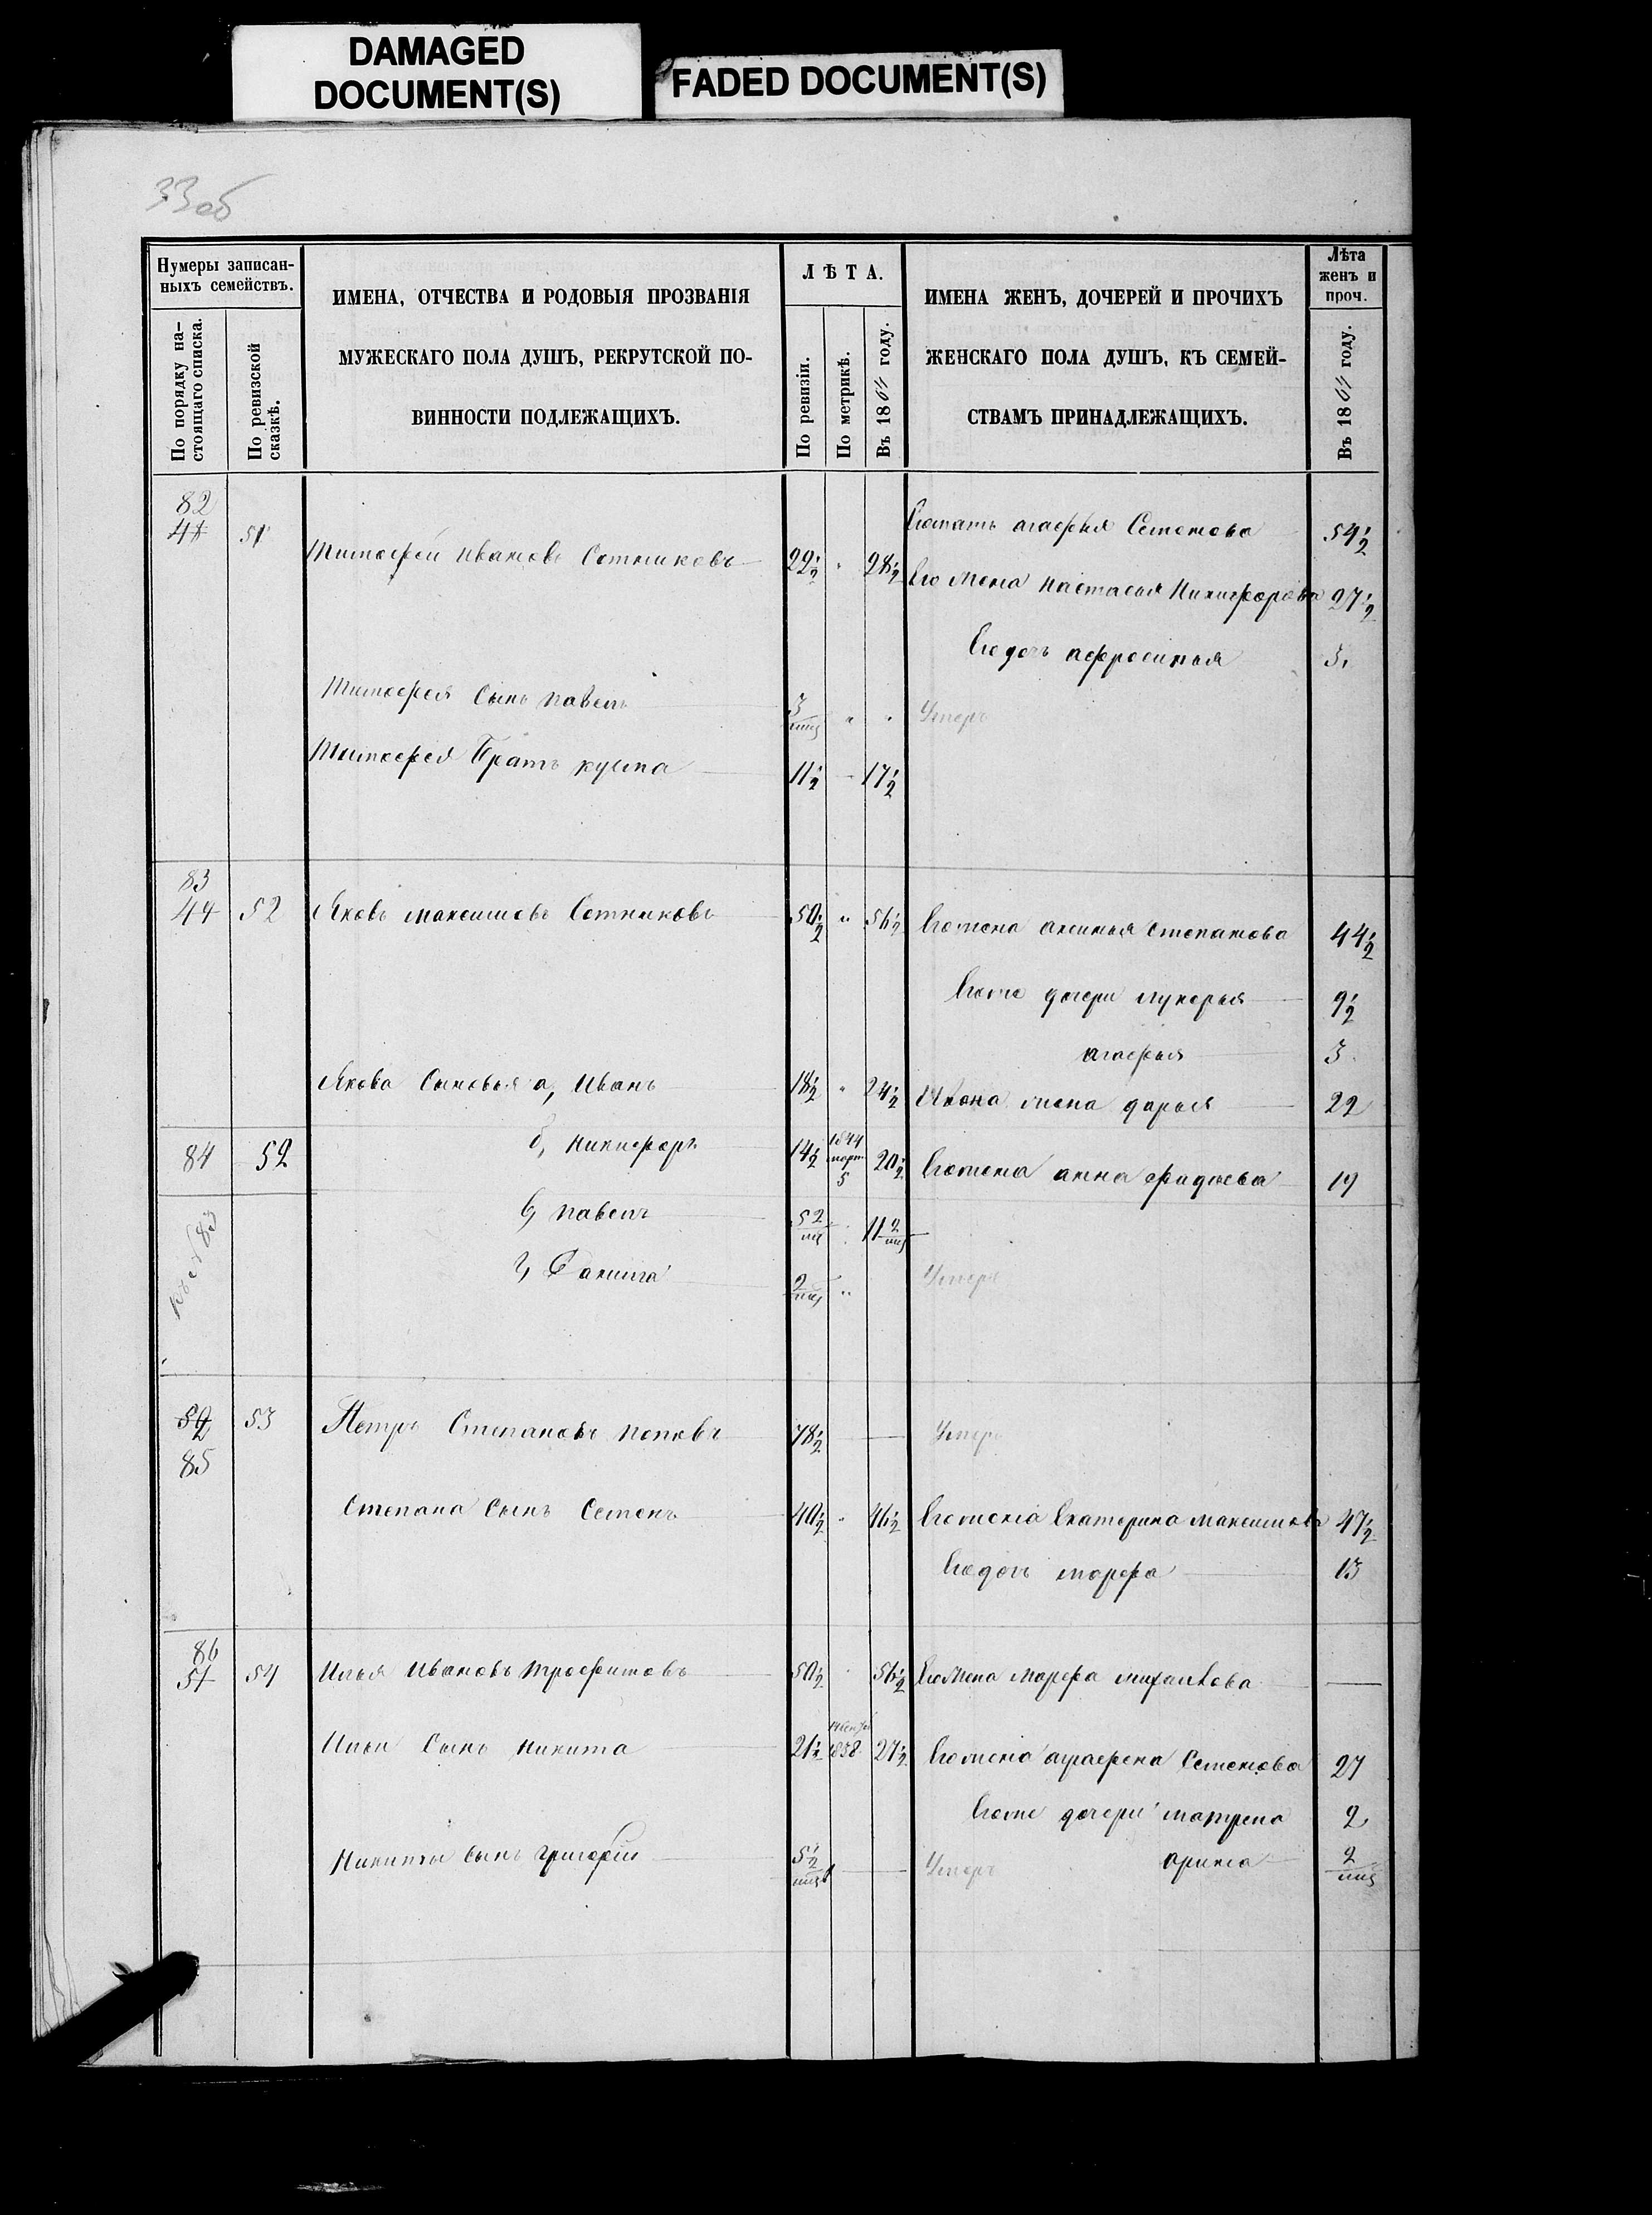 DAMAGED
DOCUMENT(S)
FADED DOCUMENT(S)
33 об
Нумеры записан-
ныхъ семействъ.
По порядку на-
стоящаго списка.
По ревизской
сказкѣ.
ИМЕНА, ОТЧЕСТВА И РОДОВЫЯ ПРОЗВАНІЯ
МУЖЕСКАГО ПОЛА ДУШЪ, РЕКРУТСКОЙ ПО-
ВИННОСТИ ПОДЛЕЖАЩИХЪ.
ЛѢТА.
По ревизіи.
По метрикѣ.
Въ 1864 году.
ИМЕНА ЖЕНЪ, ДОЧЕРЕЙ И ПРОЧИХЪ
ЖЕНСКАГО ПОЛА ДУШЪ, КЪ СЕМЕЙ-
СТВАМЪ ПРИНАДЛЕЖАЩИХЪ.
Лѣта
женъ и
проч.
Въ 1864 году.
82
Его мать агафья Семенова 54½
51 Тимофей Ивановъ Сотниковъ 22½ " 28½
Его Жена настасья Никифорова 27½
Его дочь афросинья 3
Тимофея Сынъ павелъ 3 мц " " Умеръ
Тимофея Братъ кузма 11½ 17½
83
44 52 Яковъ максимовъ Сотниковъ 50½ " 56½ Его жена аксинья степанова 44½
Его же дочери лукерья 9½
агафья 3
Якова Сыновья а, Иванъ 18½ " 24½ Ивана жена дарья 22
84 52 б, никифоръ 14½ 1844 март 5 20½ Его жена анна фадѣева 19
в, павелъ 5 2 мц 11 2 мц
г, Данила 2 мц " Умеръ
къ № 83
53 Петръ Степановъ поповъ 78½ Умеръ
85
Степана Сынъ Семенъ 40½ " 46½ Его жена Екатерина максимова 47½
Его дочь марфа 13
86
51 54 Илья Ивановъ трофимовъ 50½ 56½ Его жена марфа михайлова
Ильи Сынъ никита 21½ 27½ Его жена аграфена Семенова 27
Его же дочери матрена 2
Никиты сынъ григорій 5½ мц Умеръ арина 2 мц